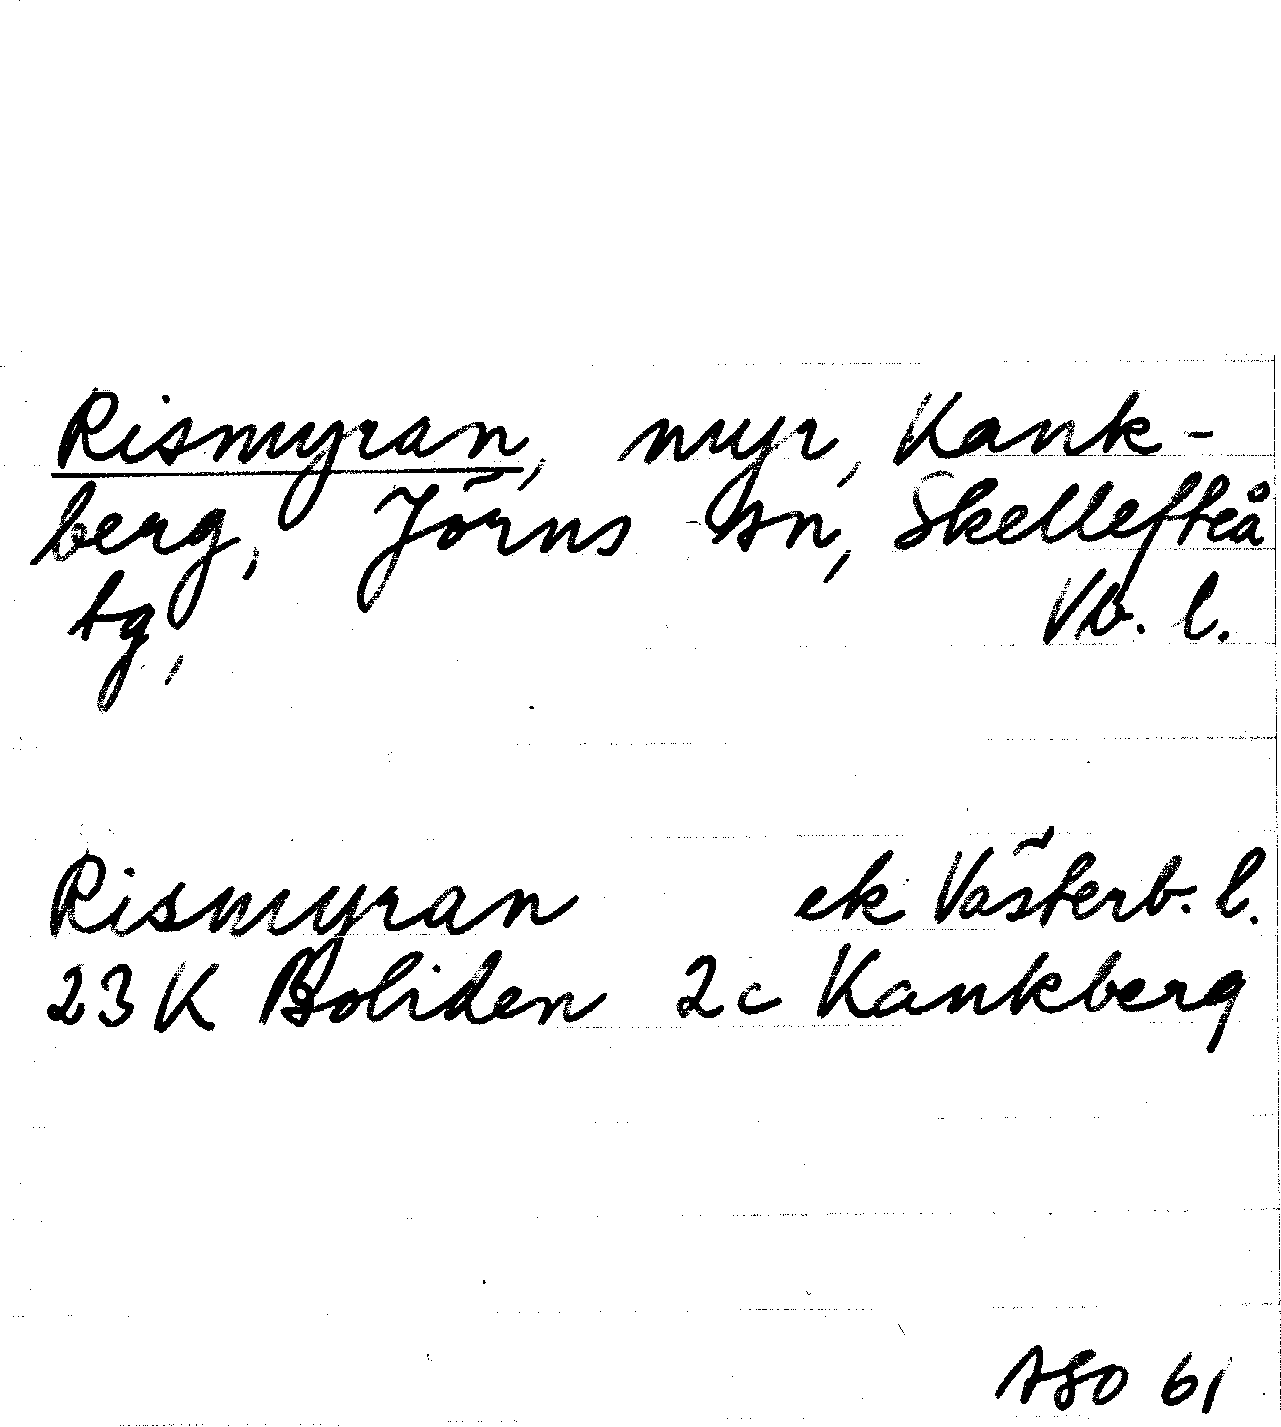 Rismyran, myr, Kank-
berg, Jörns sn, Skellefteå
tg, Vb. l.
Rismyran ek Västerb. l.
23 K Boliden 2c Kankberg
61